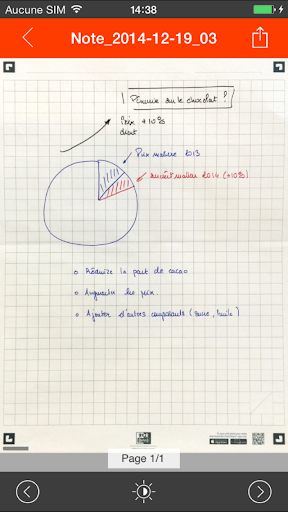 Aucune SIM 14:38
Note_2014-12-19_03
Pénurie sur le chocolat ?
Prix +10%
Prix matière 2013
2014 (+10%)
Réduire la part de cacao
Augmenter les prix.
Ajouter d'autres composants (sucre, huile)
Page 1/1